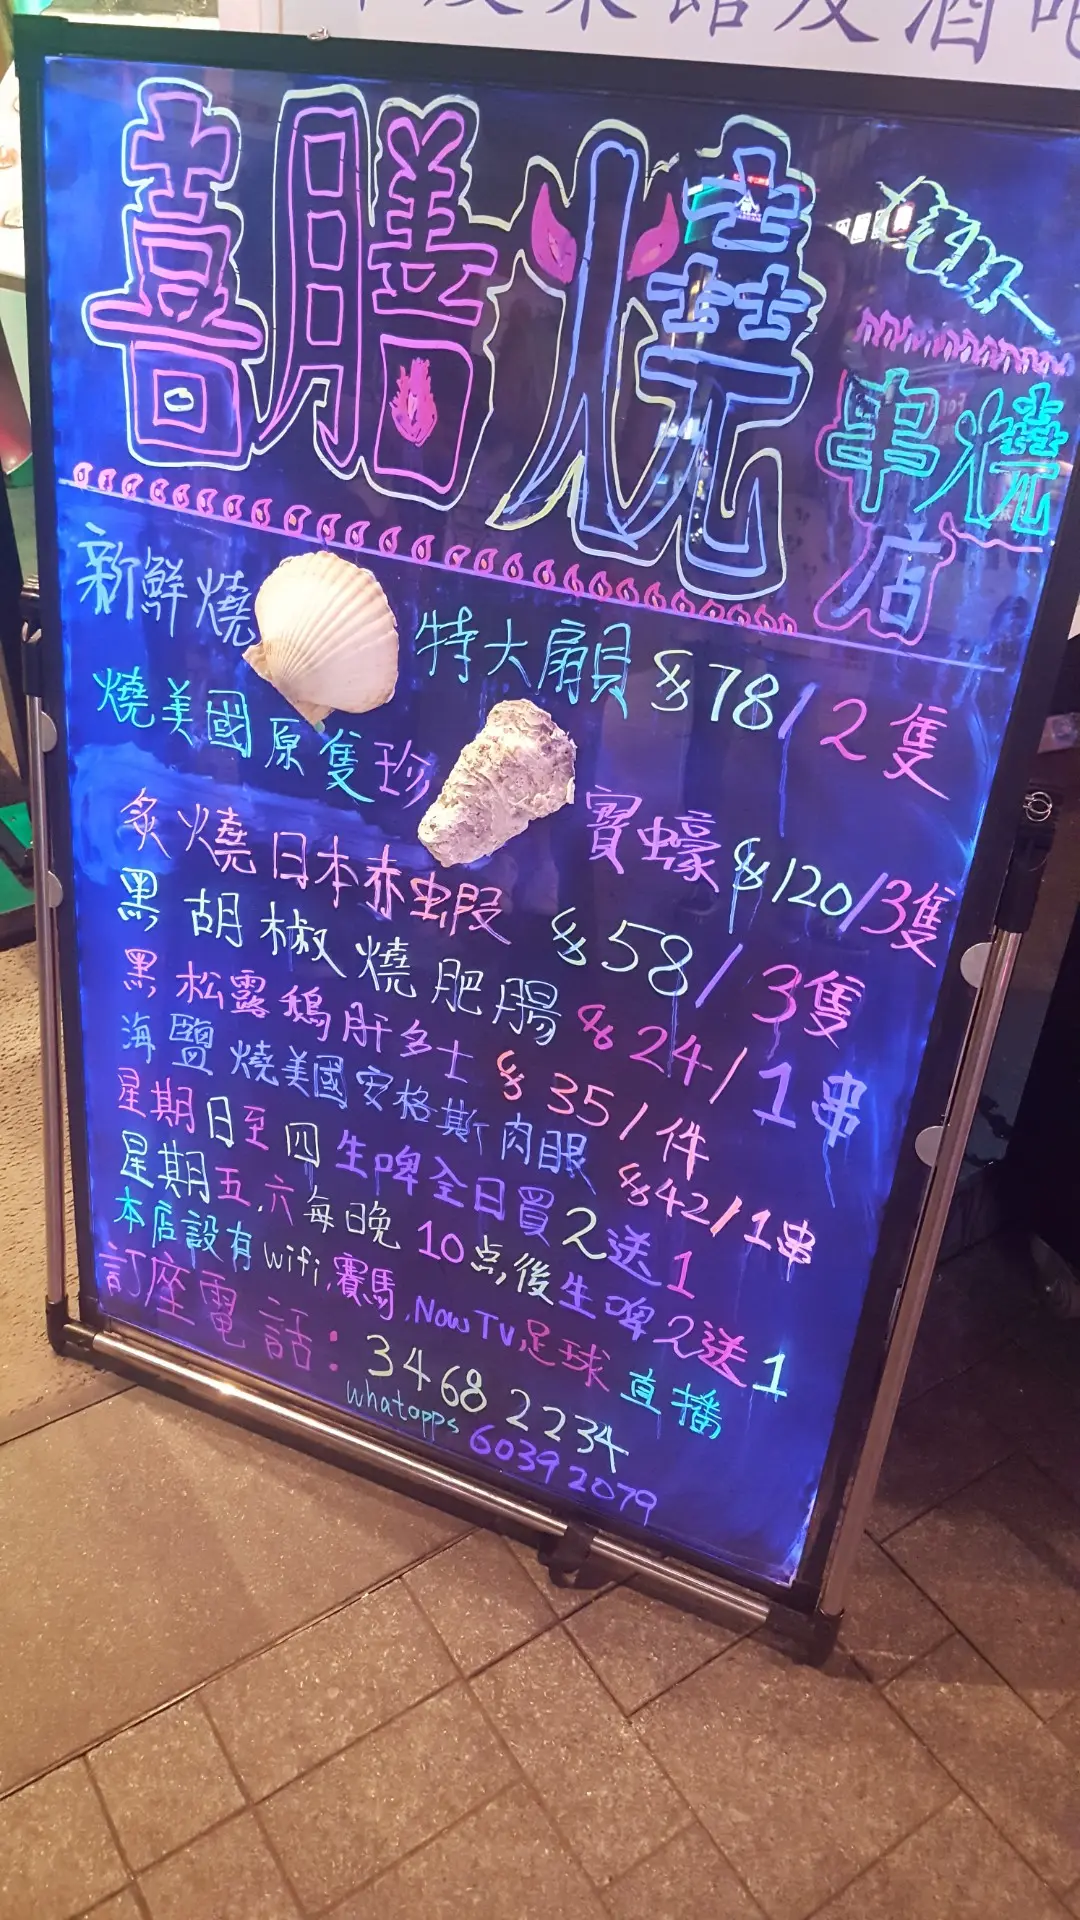 館及酒吧
喜膳燒
串燒
店
新鮮燒 特大扇貝 $78/2隻
燒美國原隻珍寶蠔 $120/3隻
炙燒日本赤蝦 $58/3隻
黑胡椒燒肥腸 $24/1串
黑松露鵝肝多士 $35/件
海鹽燒美國安格斯肉眼 $42/1串
星期日至四生啤全日買2送1
星期五,六每日晚10点後生啤2送1
本店設有wifi,賽馬,Now TV,足球直播
訂座電話:3468 2234
whatapps 60392079